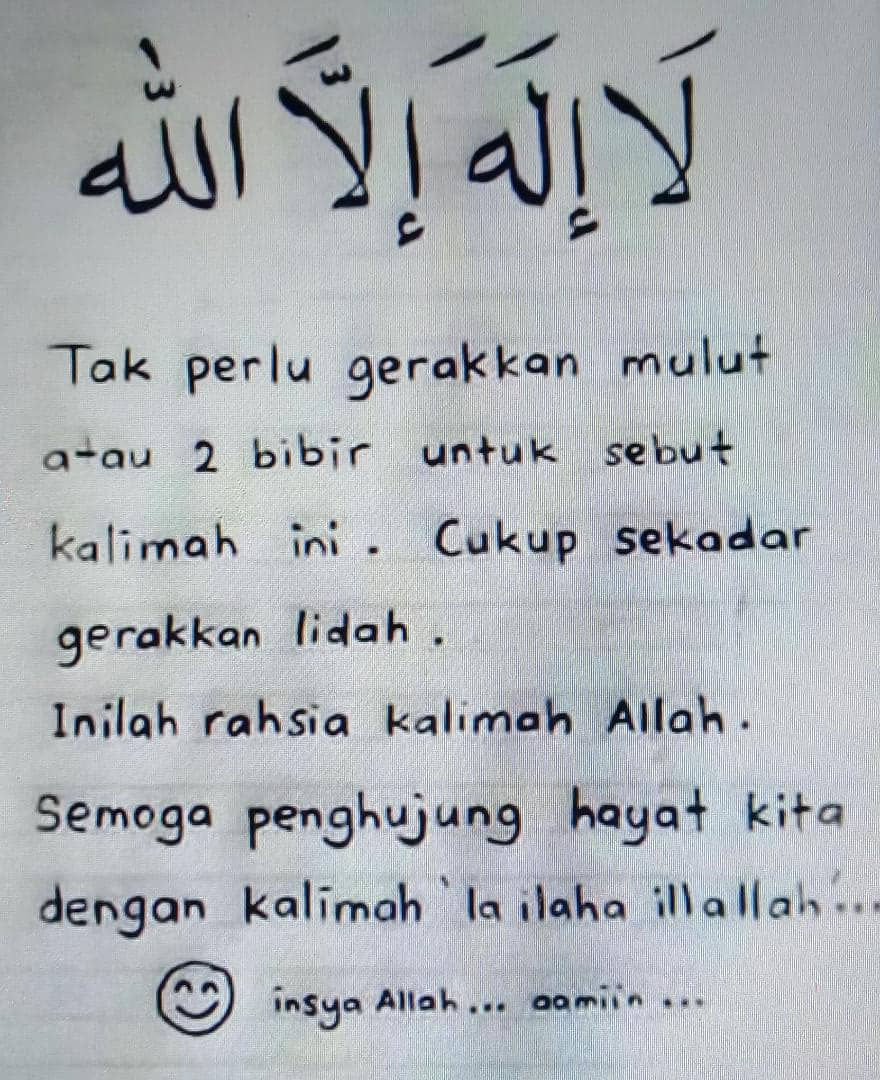 لَا إِلَهَ إِلَّا اللّٰه
Tak perlu gerakkan mulut
atau 2 bibir untuk sebut
kalimah ini. Cukup sekadar
gerakkan lidah.
Inilah rahsia kalimah Allah.
Semoga penghujung hayat kita
dengan kalimah 'la ilaha illallah'...
insya Allah... aamiin...